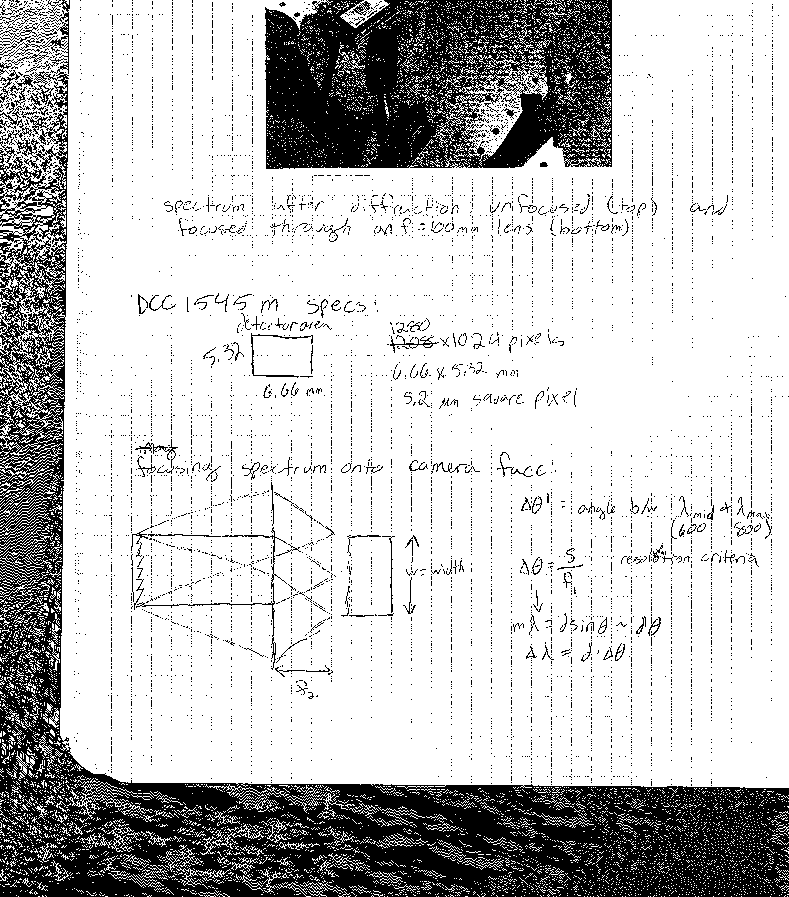 spectrum after diffraction unfocused (top) and
focused through an f=100mm lens (bottom)
DCC1545m specs:
detector area
5.32
6.66 mm
1280
x1024 pixels
6.66 x 5.32 mm
5.2 µm square pixel
focusing spectrum onto camera face:
w = width
f₂
Δθ' = angle b/w λmid & λmax
(600 800)
Δθ = S/f₁ resolution criteria
mλ = dsinθ ~ dθ
Δλ = d·Δθ